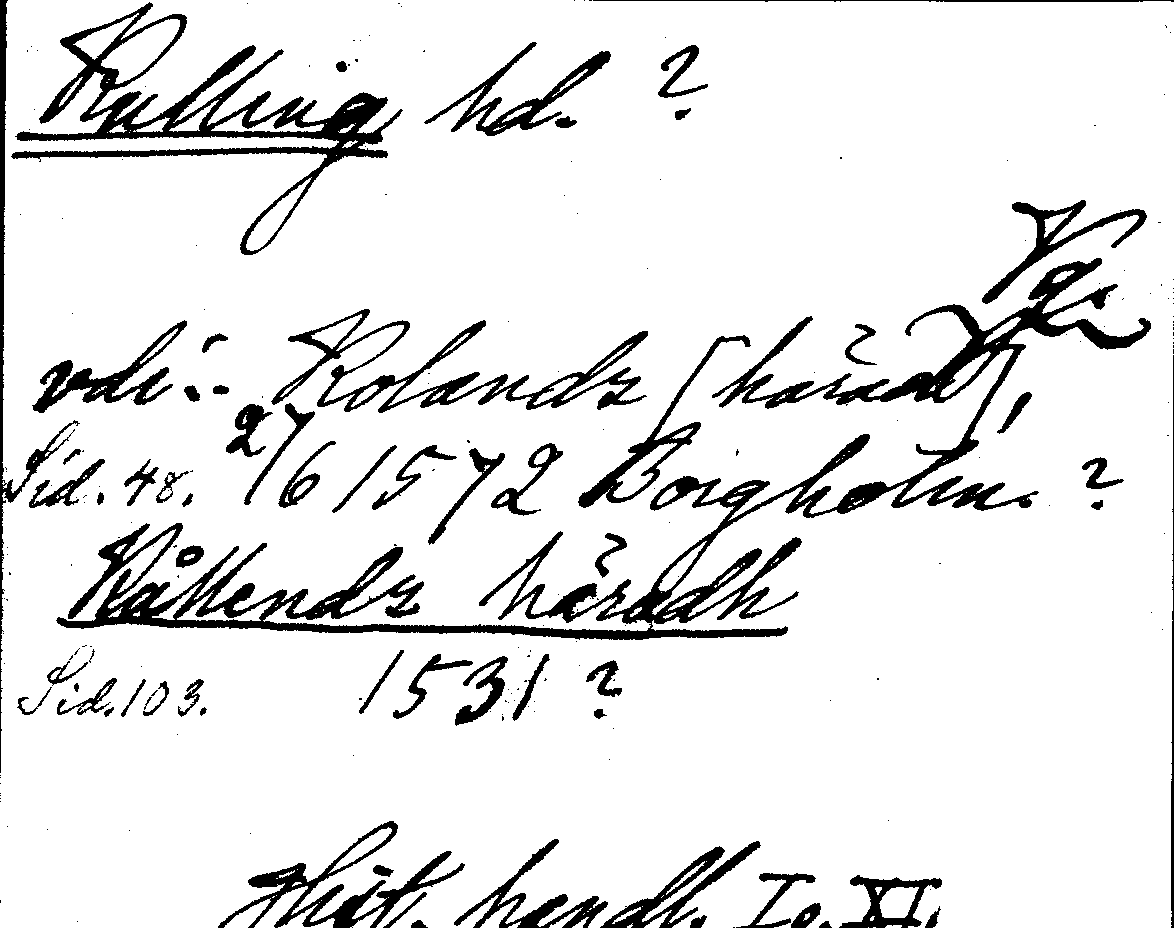 Kulling hd. ?
Vg.
vdi :- Kolandz [häradz],
Sid. 48. 27/6 1572 Borgholm. ?
Kållendz häradh
Sid. 103. 1531 ?
Hist. handl. I o. XI.